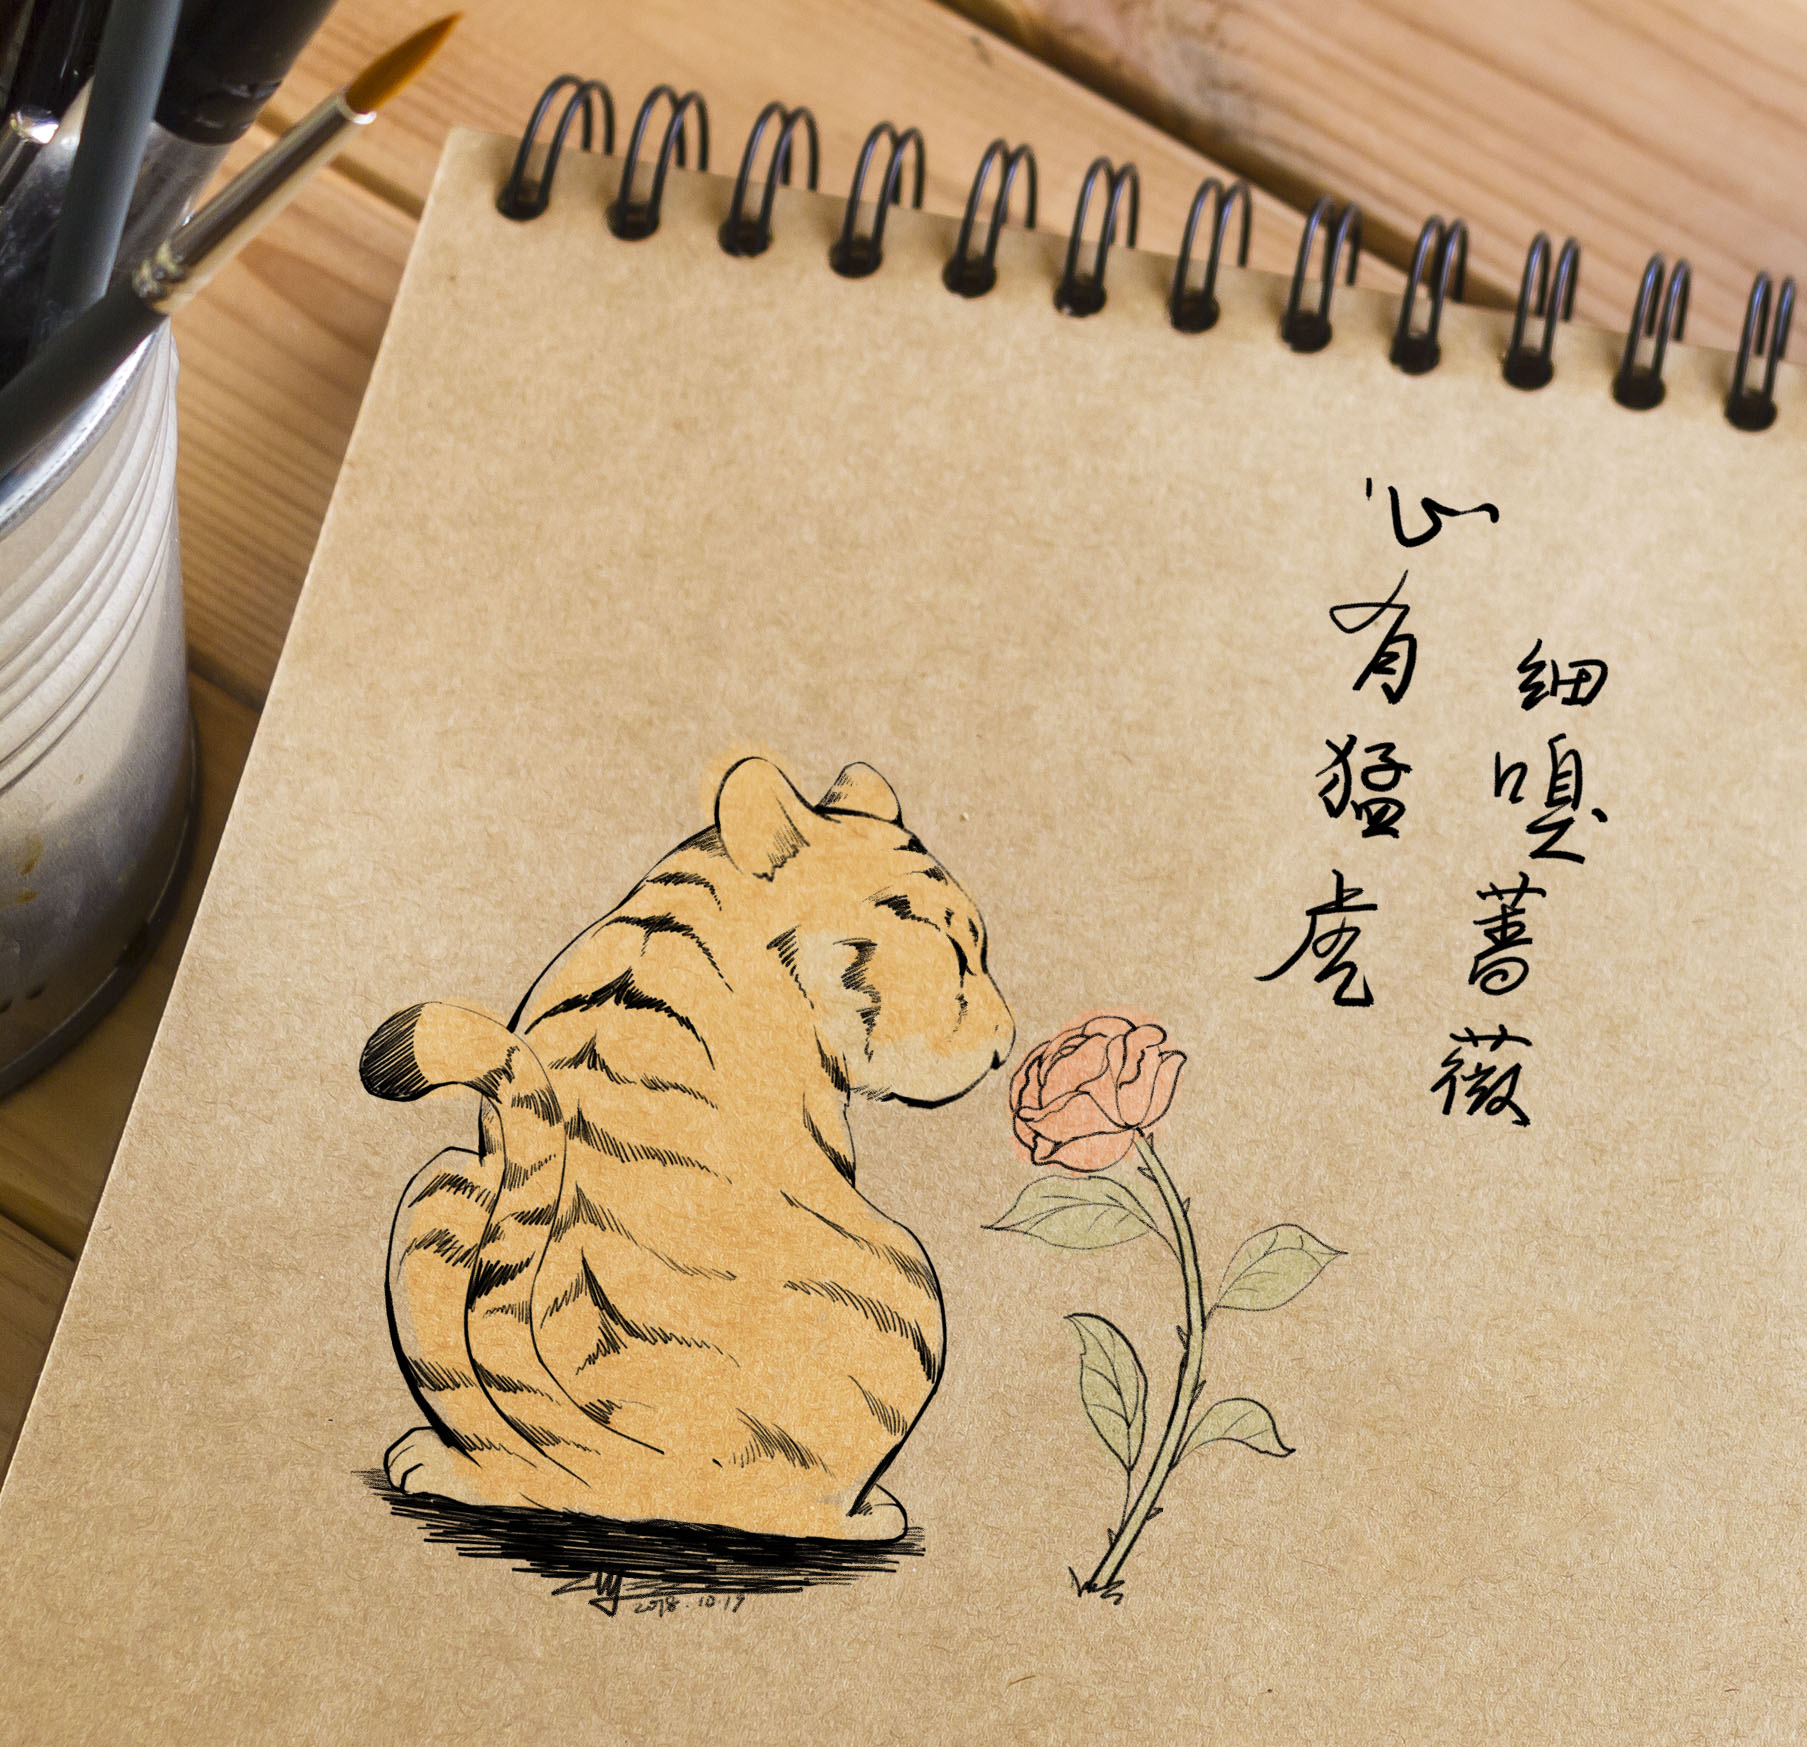 心有猛虎
细嗅蔷薇
2018.10.19